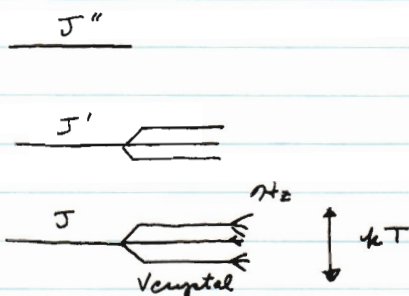 J"
J'
Hz
J
kT
Vcrystal